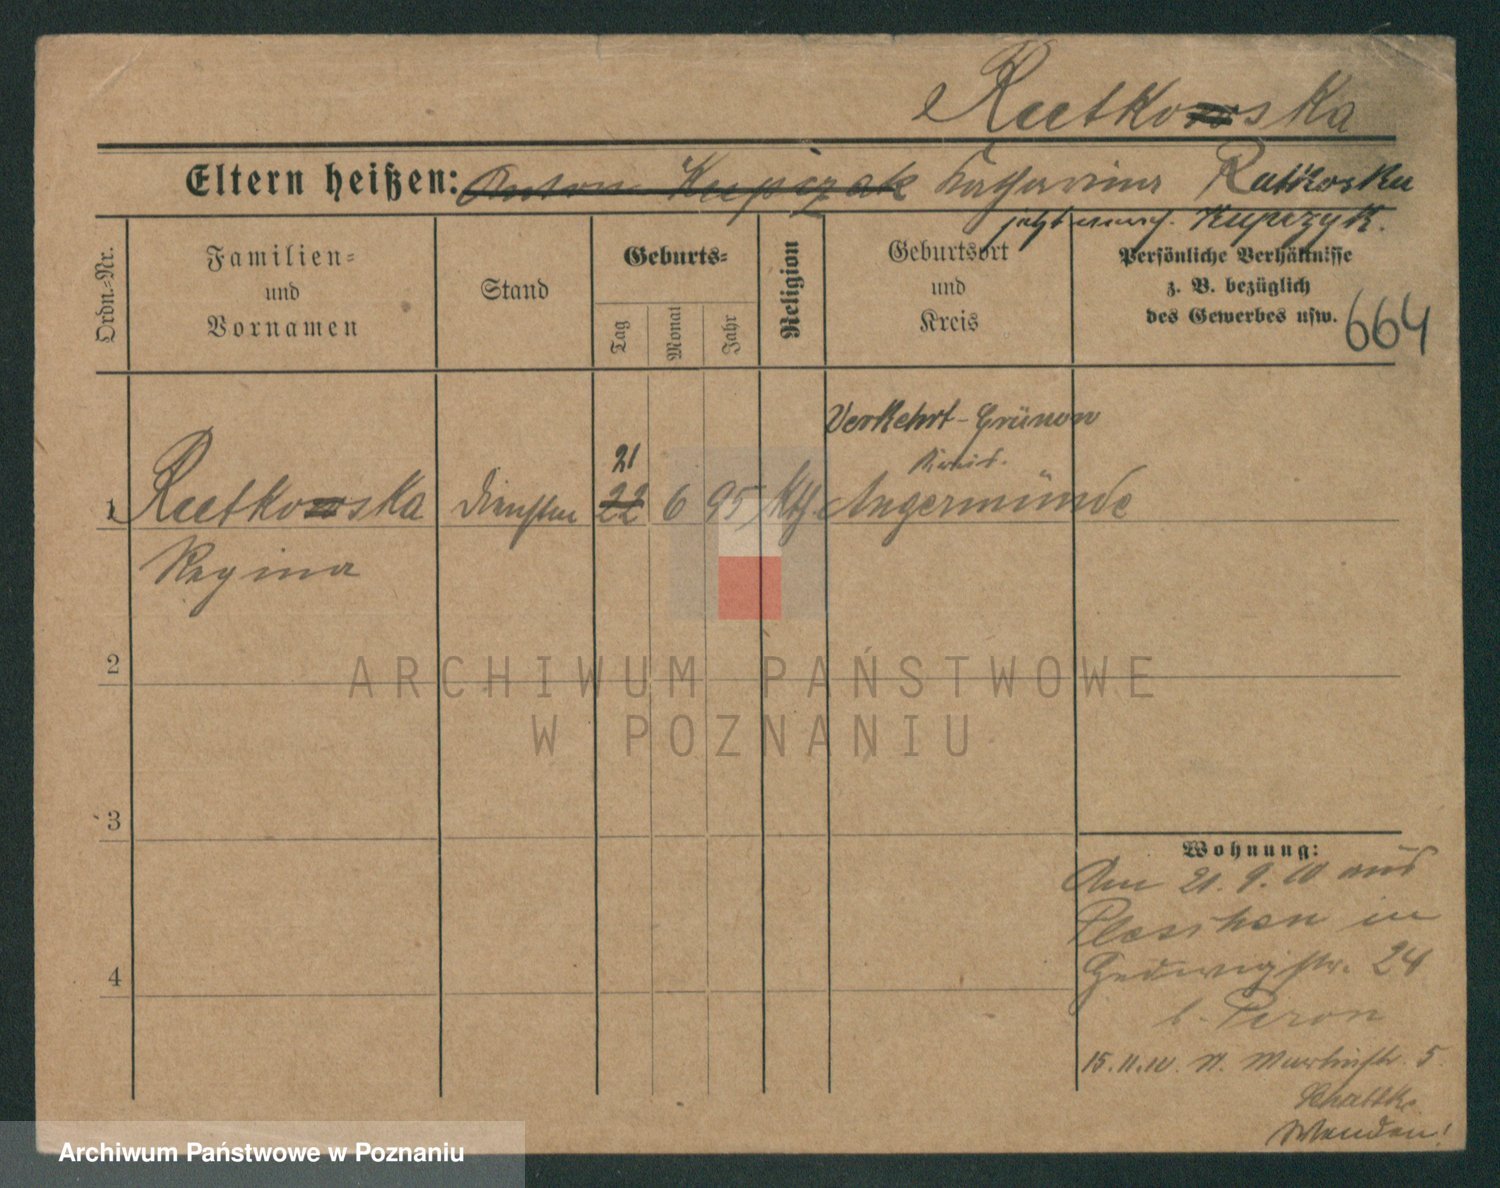 Rutkowska
Eltern heißen: Anton Kupczak Katharina Rutkoska
jetzt verw. Kupczyk.
Ordn.-Nr.
Familien-
und
Vornamen
Stand
Geburts-
Tag
Monat
Jahr
Religion
Geburtsort
und
Kreis
Persönliche Verhältnisse
z. B. bezüglich
des Gewerbes usw.
664
Verkehrt-Grünow
21
1 Rutkowska 22 6 95 Kth Angermünde
Regina
2
ARCHIWUM PAŃSTWOWE
W POZNANIU
3
4
Wohnung:
Am 21.9.10 aus
Pleschen in
Hedwigstr. 24
b. Peron
15.11.10. St. Martinstr. 5
Wenden!
Archiwum Państwowe w Poznaniu